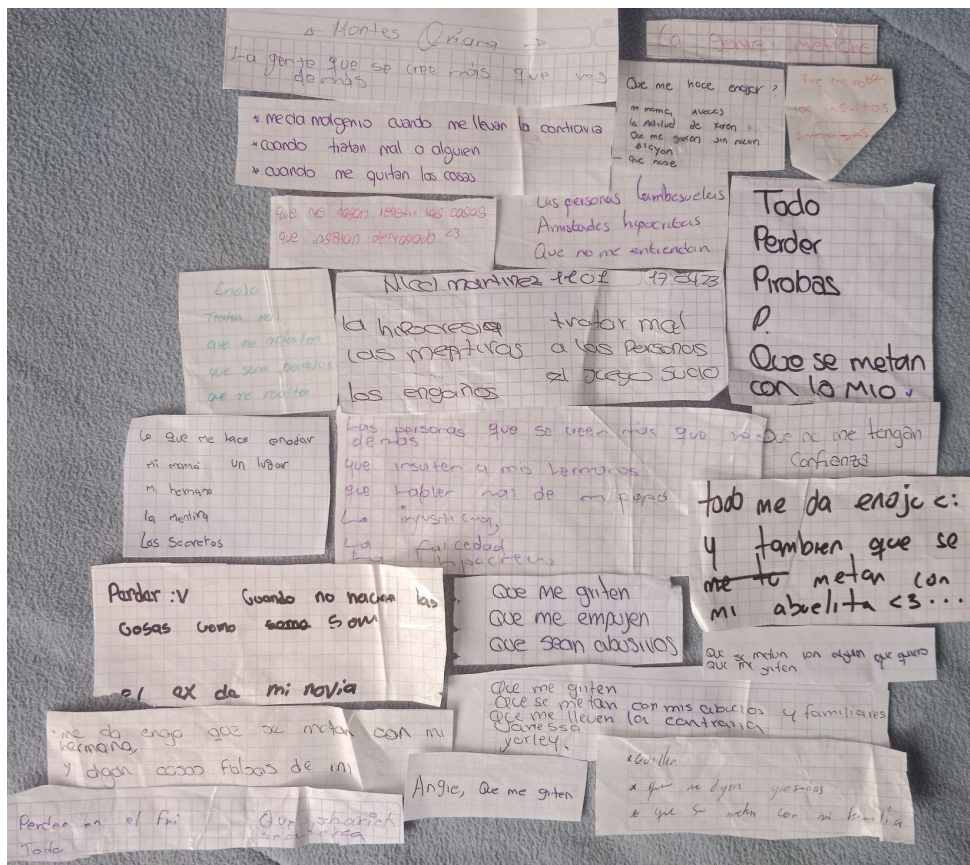 Montes Oriana
La gente que se cree más que los
demás
La gente metiche
Que me hace enojar?
mi mama, aveces
la Actitud de
Que me griten sin razon
que nose
Que me roben
los insultos
* me da malgenio cuando me llevan la contraria
* cuando tratan mal a alguien
* cuando me quitan las cosas
que me hagan repetir las cosas
que insistan demasiado <3
Las personas lambesuelas
Amistades hipocritas
Que no me entiendan
Todo
Perder
Pirobas
P.
Que se metan
con lo Mio.
Enojo
que me molesten
que sean
que me insulten
Nicol martinez 1101
la hipocresia
las mentiras
los engaños
tratar mal
a las Personas
el Juego sucio
Lo que me hace enodar
mi mamá un lugar
mi hermano
la mentira
Los secretos
Las personas que se creen más que los
demás
que insulten a mis hermanos
que hablen mal de mi papá
La injusticia,
La falcedad
Que no me tengan
Confienza
todo me da enojo c:
y tambien que se
me tu metan con
mi abuelita <3...
Pardar :v Cuando no hacian las
cosas como soma son
el ex de mi novia
Que me griten
Que me empujen
Que sean abusivos
Que se metan con alguien que quiero
Que me griten
Que me griten
Que se metan con mis abuelos y familiares
Que me lleven la contraria
Vanessa
yorley.
me da enojo que se metan con mi
hermana,
y digan cosas falsas de mi
Angie, Que me griten
* que me digan groserias
* que se metan con mi familia
Perder en el fri
Todo
Que sharick